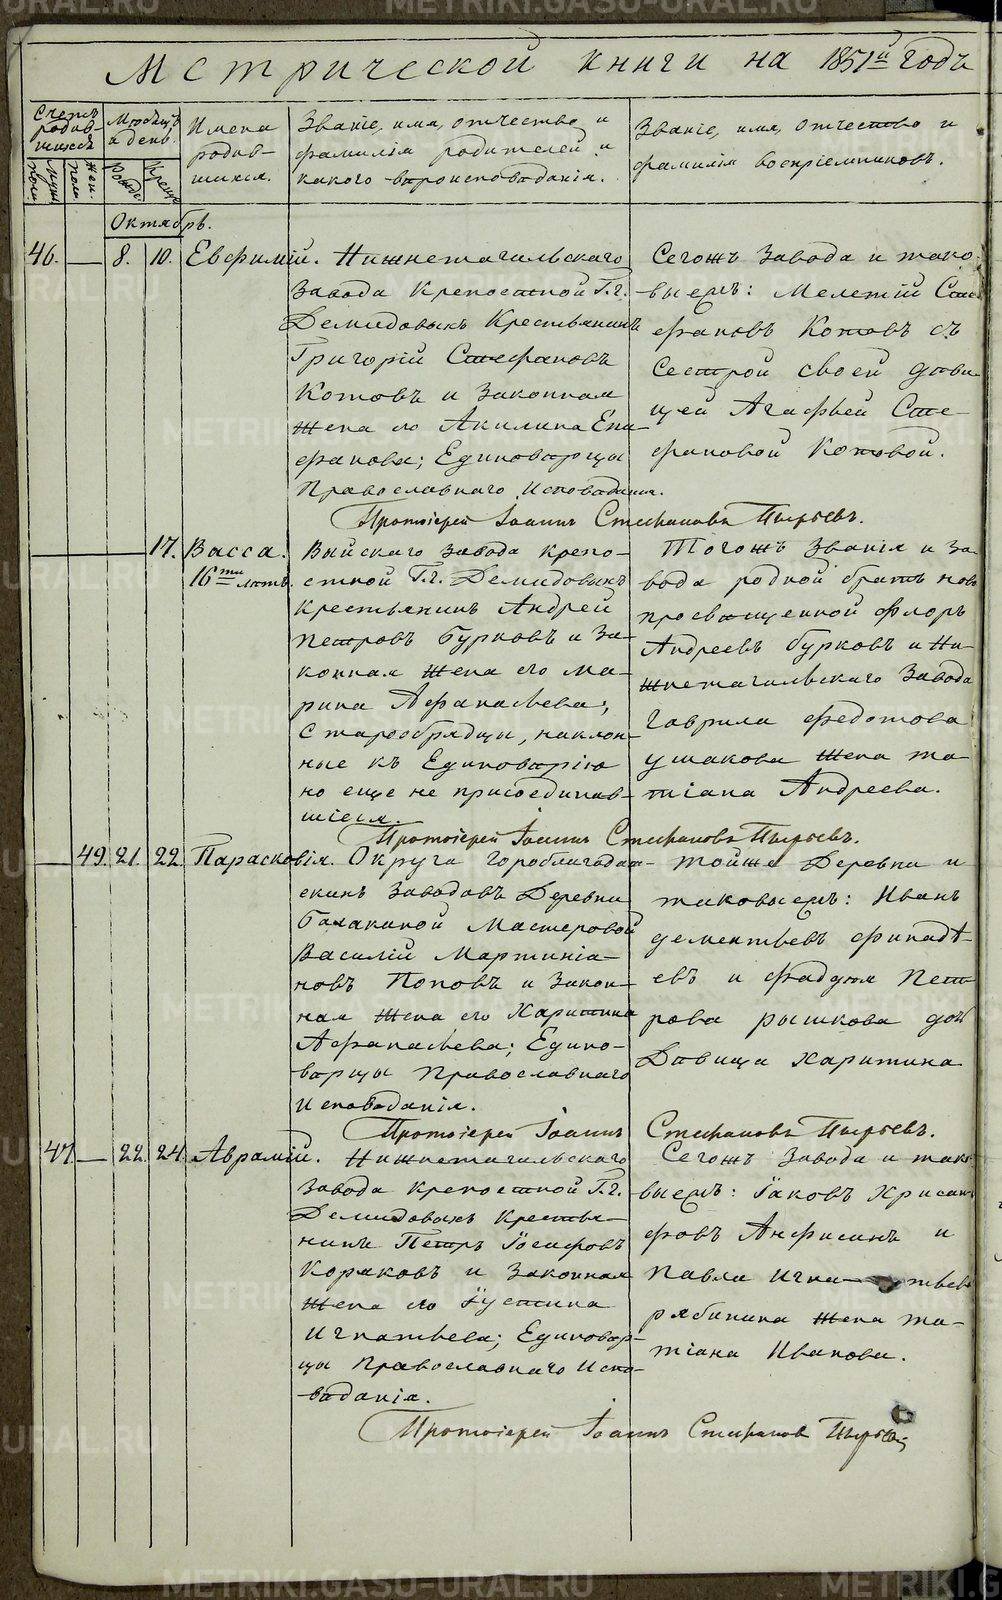 Метрической книги на 1851й годъ
Счетъ родив-шихся
Мужеска пола
Жен. пола
Мѣсяцъ и день
Рожд.
Крещ.
Имена родив-шихся.
Званіе, имя, отчество и
фамилія родителей и
какого вѣроисповѣданія.
Званіе, имя, отчество и
фамилія воспріемниковъ.
Октябрь.
46. — 8. 10. Евфимій.
Нижнетагильскаго
Завода Крепостной Г.г.
Демидовыхъ Крестьянинъ
Григорій Стефановъ
Котовъ и Законная
Жена его Акилина Епи-
фанова; Единоверцы
Православнаго Исповѣданія.
Сегожъ Завода и тако-
выежъ: Мелетій Сте-
фановъ Котовъ съ
Сестрой своей дѣви-
цей Агафьей Сте-
фановой Котовой.
Протоіерей Іоаннъ Стефановъ Пырьевъ.
17. Васса.
16ти лѣтъ.
Выйскаго завода крепо-
стной Г.г. Демидовыхъ
Крестьянинъ Андрей
Петровъ Бурковъ и За-
конная Жена его Ма-
рина Афанасьева;
Старообрядцы, наклон-
ные къ Единоверію
но еще не присоединив-
шіеся.
Тогожъ Званія и За-
вода родной братъ ново
просвѣщенной Флоръ
Андреевъ Бурковъ и Ни-
жнетагильскаго Завода
Гаврила Федотова
Ушакова Жена та-
тіана Андреева.
Протоіерей Іоаннъ Стефановъ Пырьевъ.
49. 21. 22. Парасковія.
Округа Гороблагодат-
скихъ Заводовъ Деревни
Балакиной Мастеровой
Василій Мартиніа-
новъ Поповъ и Закон-
ная Жена его Харитина
Афанасьева; Едино-
вѣрцы Православнаго
Исповѣданія.
тойже Деревни и
таковыежъ: Иванъ
Дементьевъ Финадѣ-
евъ и Фаддея Пет-
рова рышкова дочь
Дѣвица Харитина
Протоіерей Іоаннъ Стефановъ Пырьевъ.
47 — 22. 24. Аврамій.
Нижнетагильскаго
Завода Крепостной Г.г.
Демидовыхъ Крестья-
нинъ Петръ Іосифовъ
Кораковъ и Законная
Жена его Іустина
Игнатьева; Единовер-
цы Православнаго Испо-
вѣданія.
Сегожъ Завода и тако-
выежъ: Іаковъ Хрисан-
фовъ Анфисинъ и
Павла Игна-тьева
рябинина Жена та-
тіана Иванова.
Протоіерей Іоаннъ Стефановъ Пырьевъ
METRIKI.GASO-URAL.RU